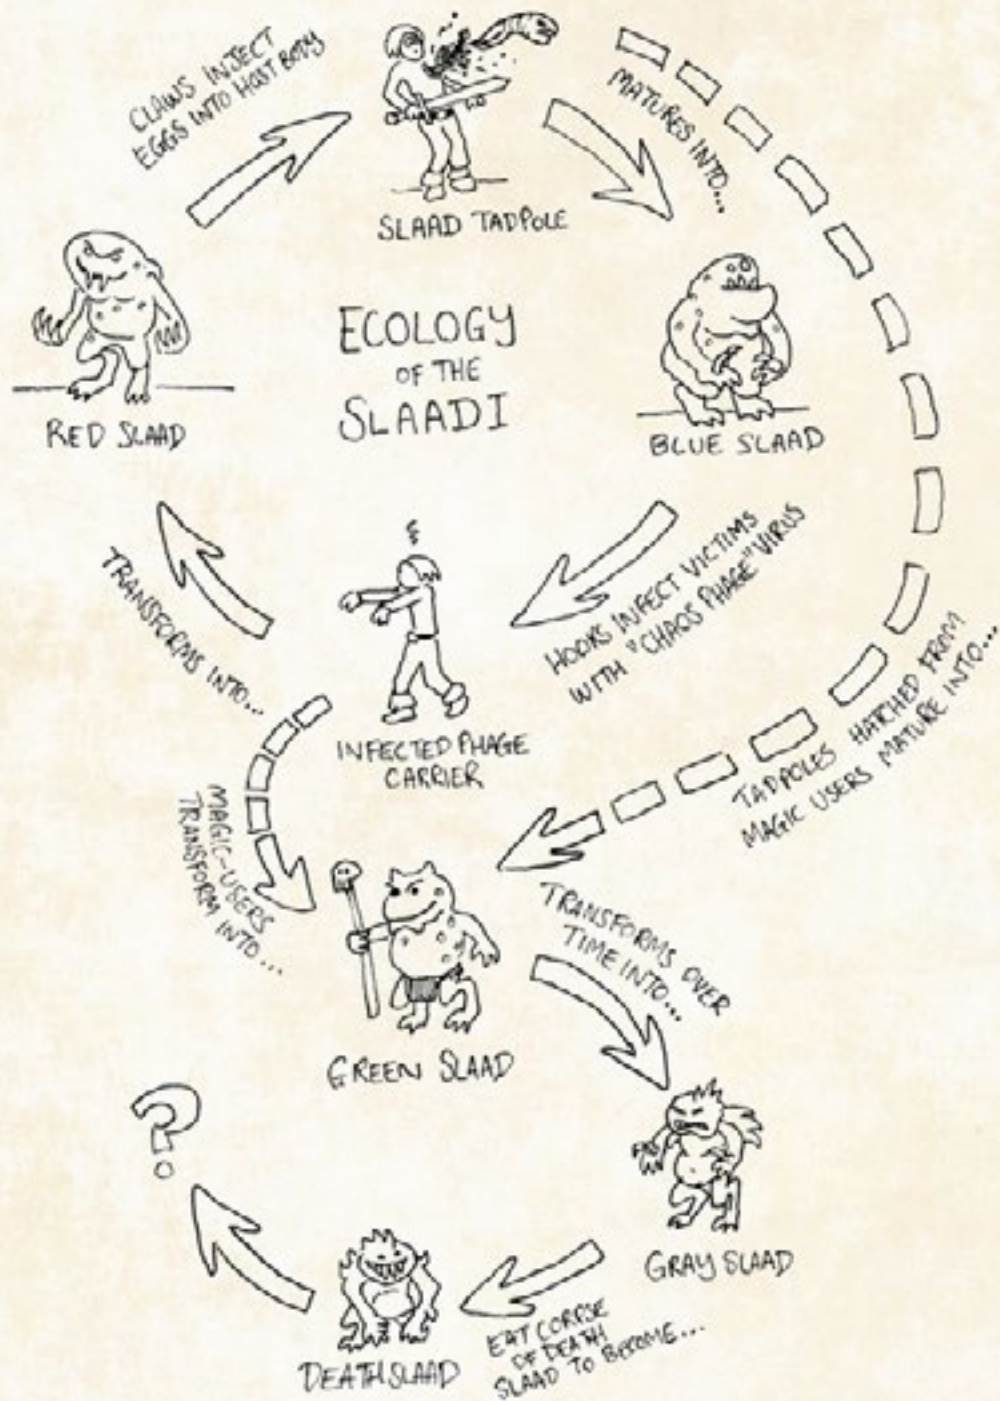 CLAWS INJECT
EGGS INTO HOST BODY
MATURES INTO...
SLAAD TADPOLE
ECOLOGY
OF THE
SLAADI
RED SLAAD
BLUE SLAAD
HOOKS INFECT VICTIMS
WITH "CHAOS PHAGE" VIRUS
TRANSFORMS INTO...
INFECTED PHAGE
CARRIER
TADPOLES HATCHED FROM
MAGIC USERS MATURE INTO...
MAGIC-USERS
TRANSFORM INTO...
TRANSFORMS OVER
TIME INTO...
GREEN SLAAD
?
GRAY SLAAD
EAT CORPSE
OF DEATH
SLAAD TO BECOME...
DEATH SLAAD